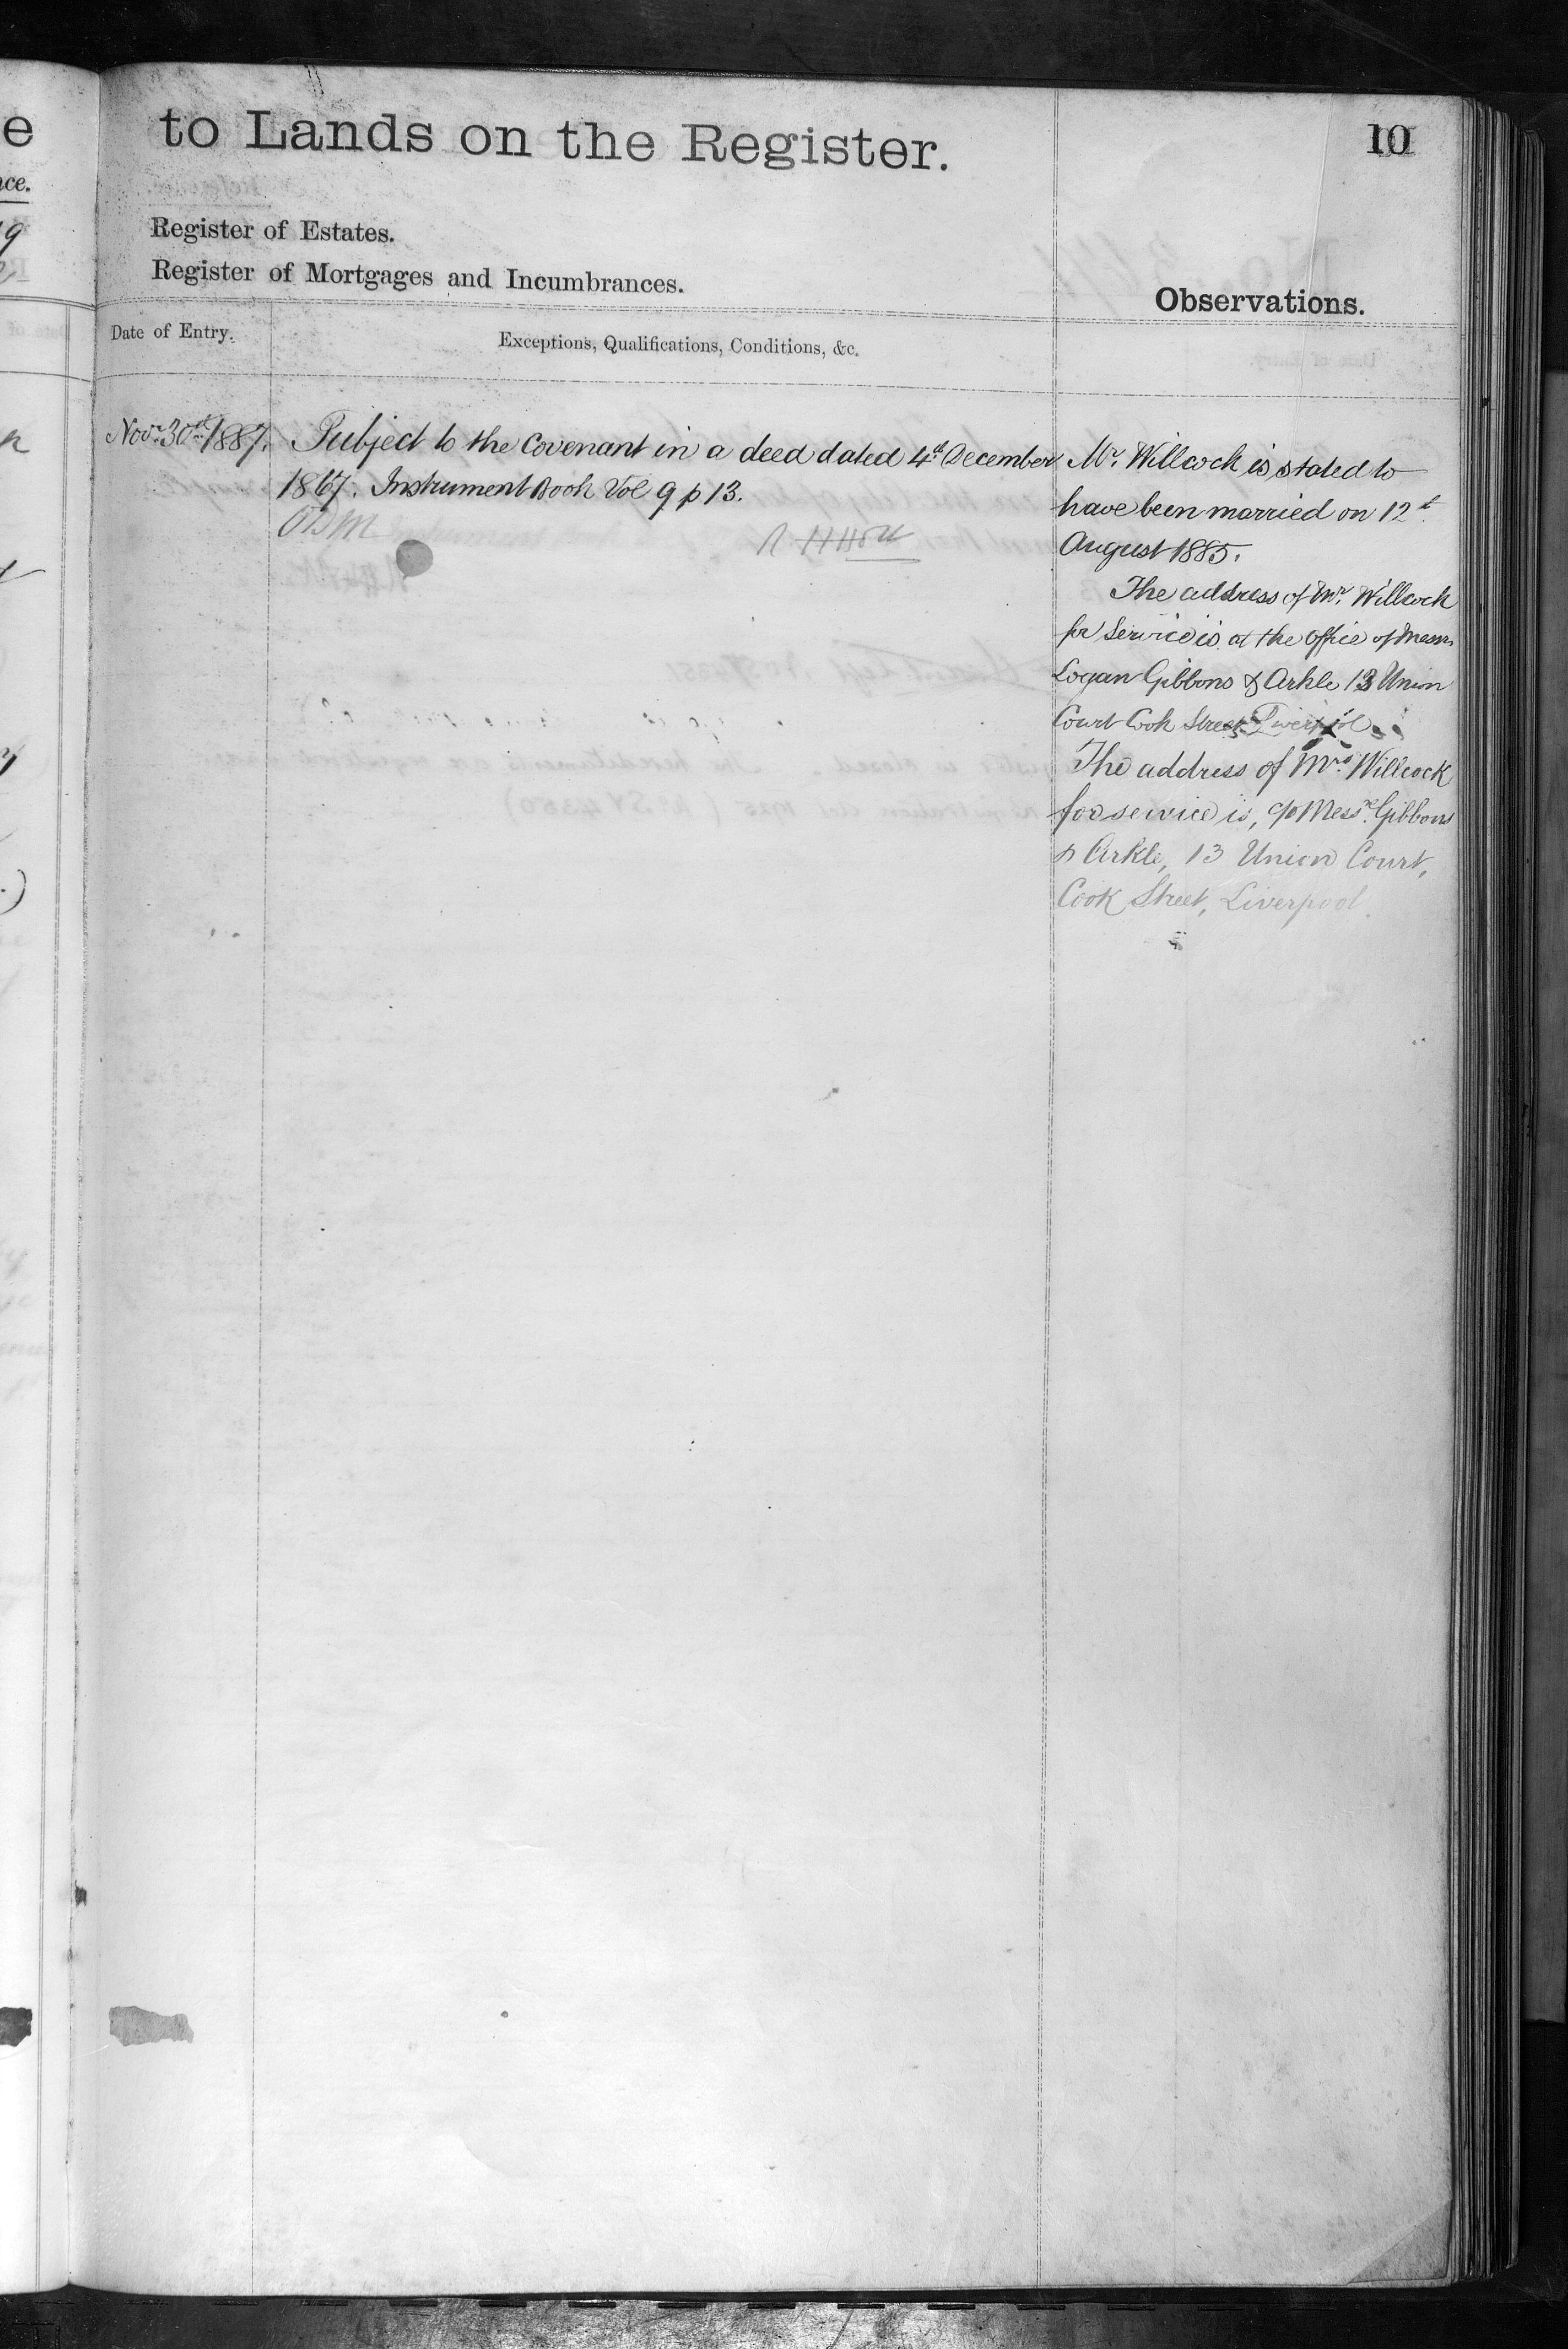 to Lands on the Register.
10
Register of Estates.
Register of Mortgages and Incumbrances.
Observations.
Date of Entry.
Exceptions, Qualifications, Conditions, &c.
Novr. 30th 1887.
Subject to the Covenant in a deed dated 4th December
1867. Instrument Book Vol 9 p 13.
Mr. Willcock is stated to
have been married on 12th
August 1885.
The address of Mr. Willcock
for Service is at the office of Messrs
Logan Gibbons & Arkle 13 Union
Court Cook Street Liverpool
The address of Mrs. Willcock
for service is, c/o Messrs. Gibbons
& Arkle, 13 Union Court,
Cook Street, Liverpool.